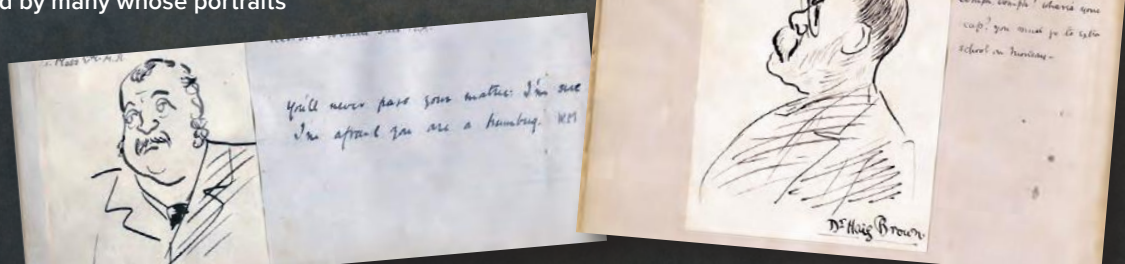 d by many whose portraits
You'll never pass your matric: I'm sure
I'm afraid you are a humbug.
cap? you must go to extra
school on Monday-
Dr Haig Brown.